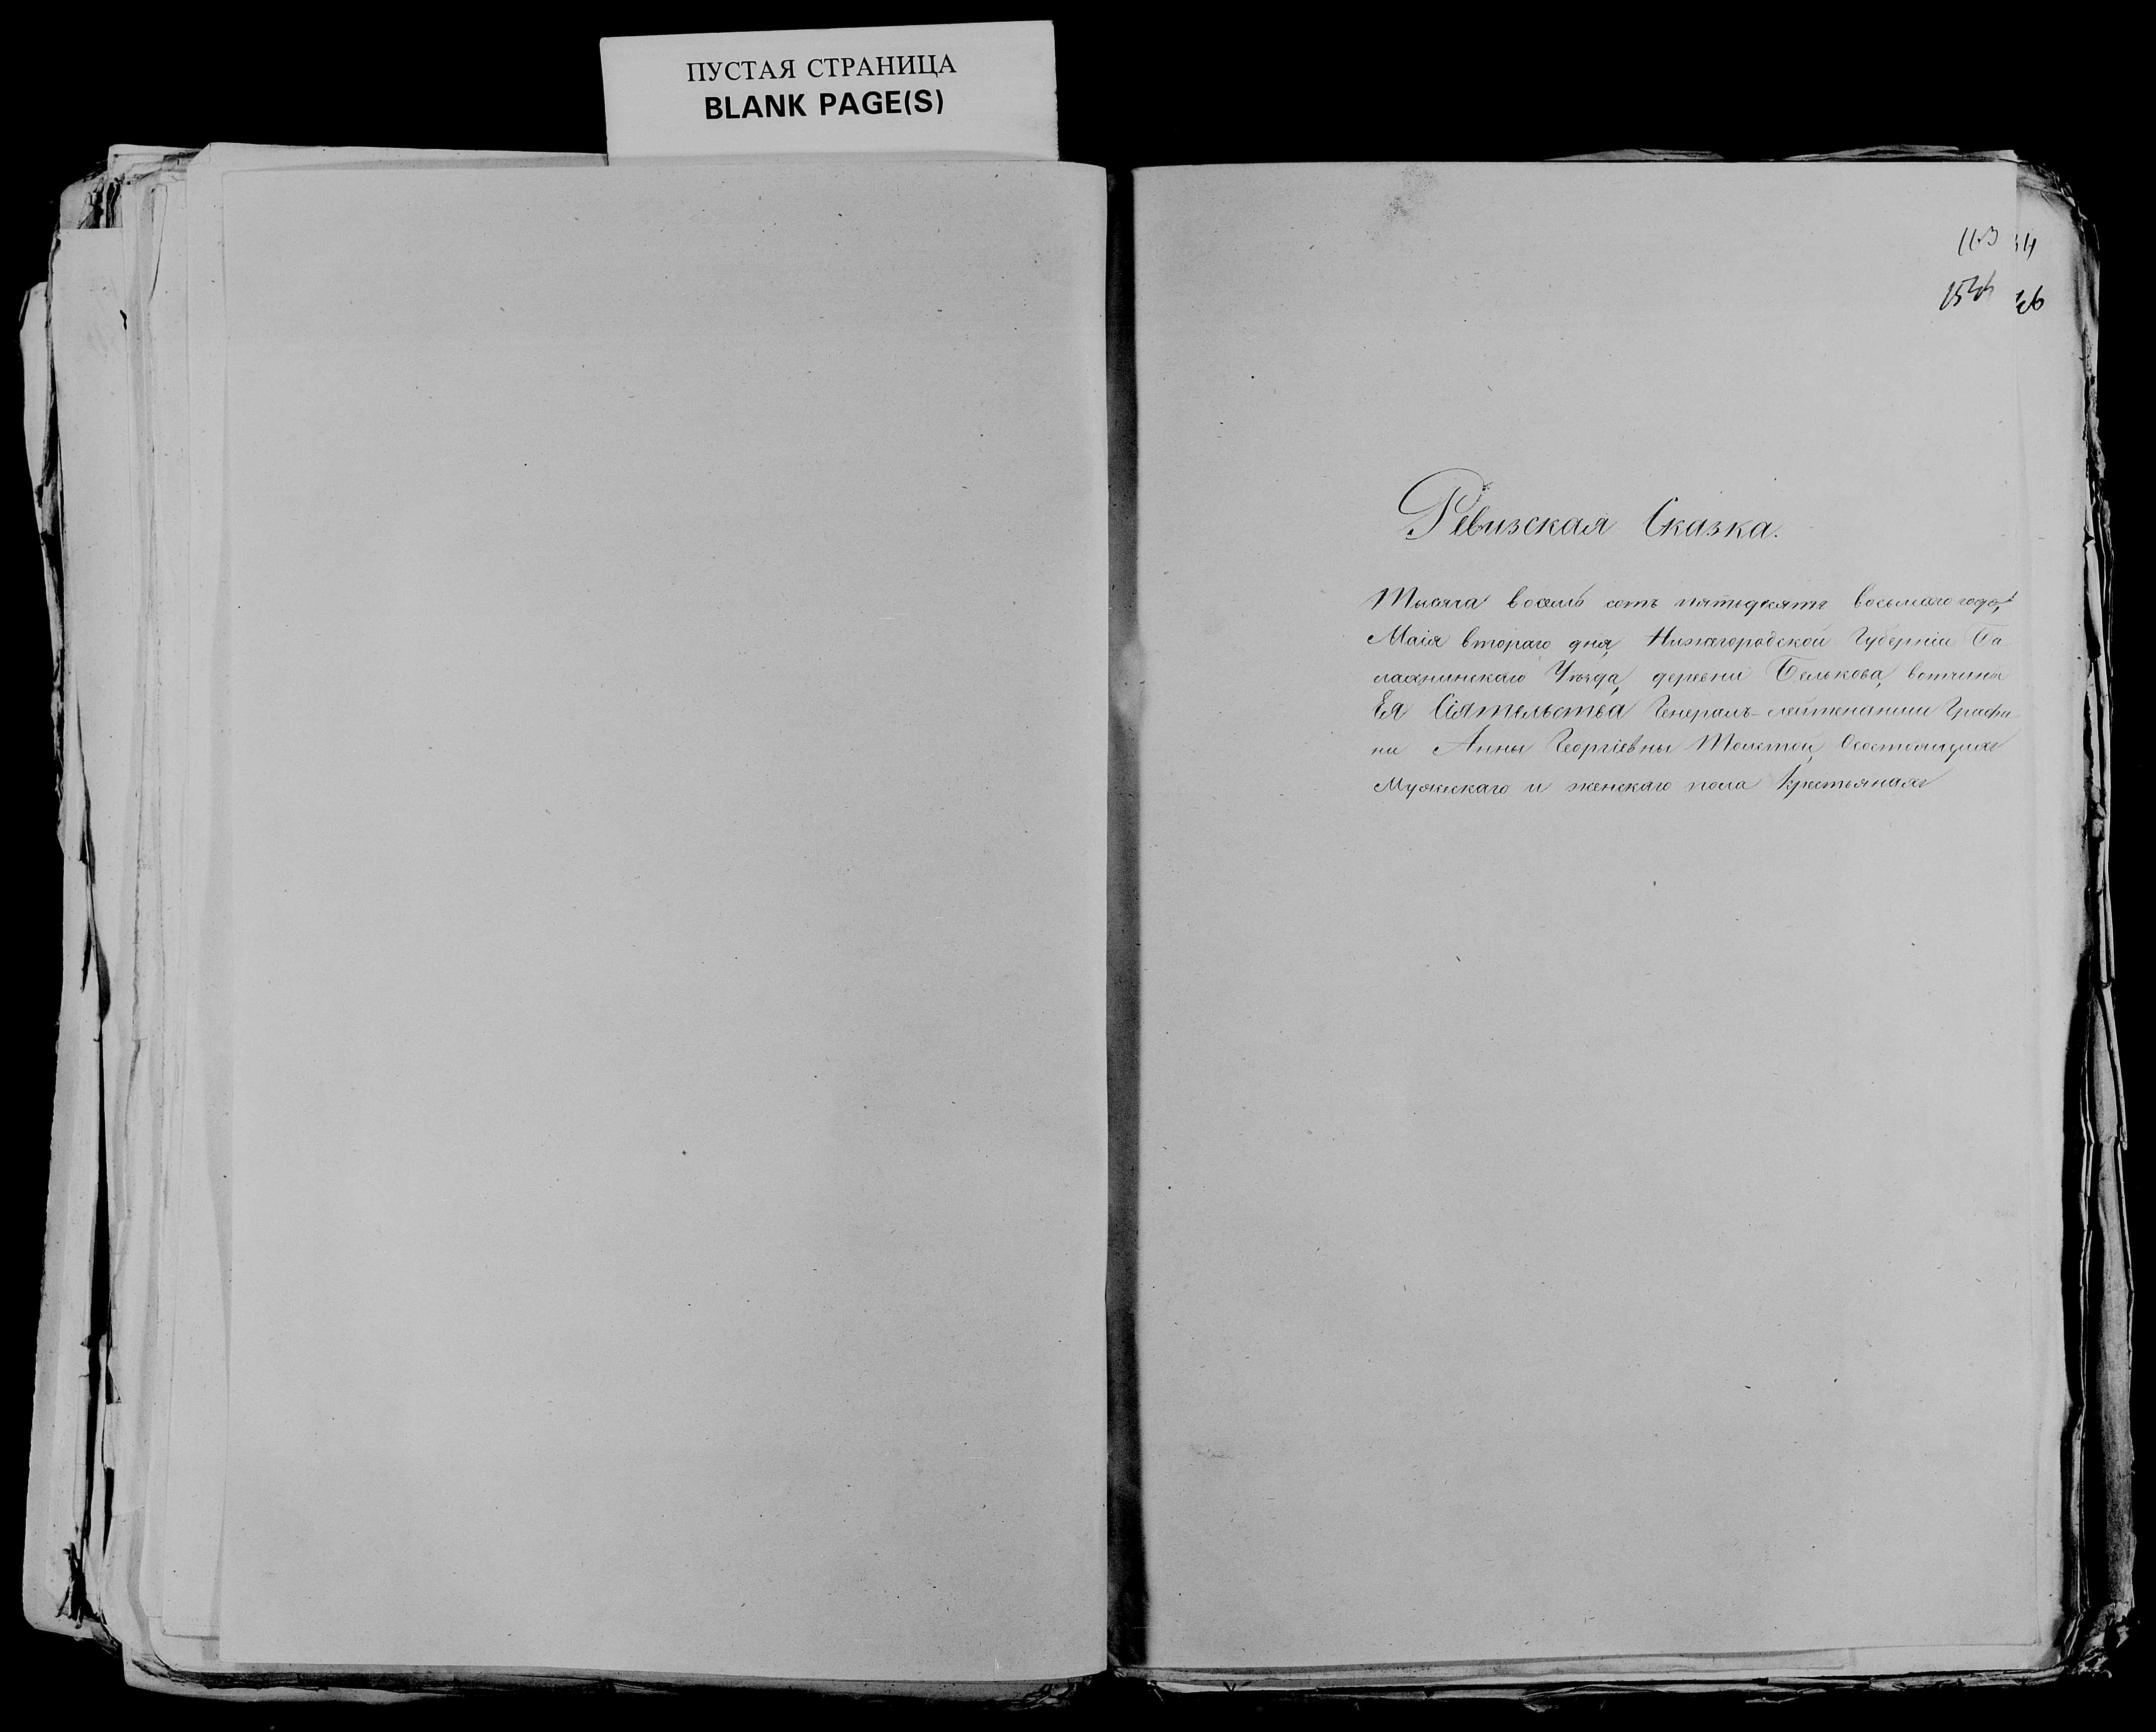 ПУСТАЯ СТРАНИЦА
BLANK PAGE(S)
Ревизская Сказка.
Тысяча восемь сотъ пятьдесятъ восьмаго года,
Маія втораго дня, Нижегородской Губерніи Ба
лахнинскаго Уѣзда, деревни Белькова, вотчины
Ея Сіятельства Генералъ-лейтенантши Графи-
ни Анны Георгіевны Толстой, О состоящихъ
Мужескаго и женскаго пола Крестьянахъ